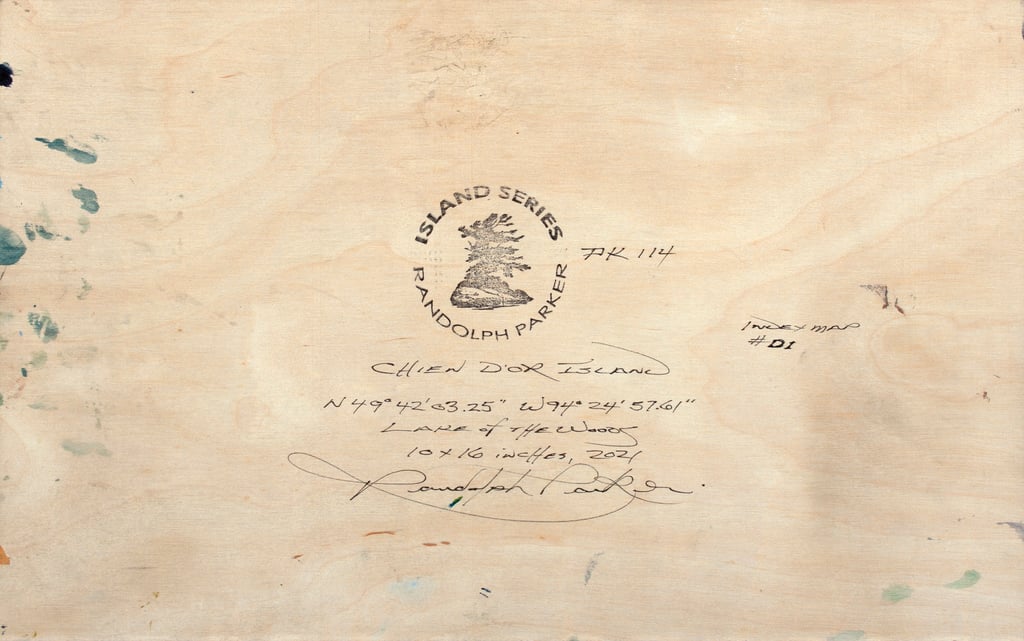 ISLAND SERIES
RANDOLPH PARKER
PK 114
INDEX MAP
#D1
CHIEN D'OR ISLAND
N 49° 42' 03.25" W 94° 24' 57.61"
LAKE of THE WOODS
10 x 16 incHes, 2021
Randolph Parker.